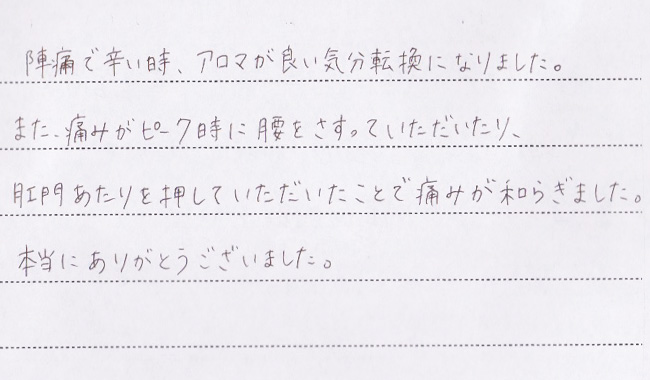 陣痛で辛い時、アロマが良い気分転換になりました。
また、痛みがピーク時に腰をさすっていただいたり、
肛門あたりを押していただいたことで痛みが和らぎました。
本当にありがとうございました。